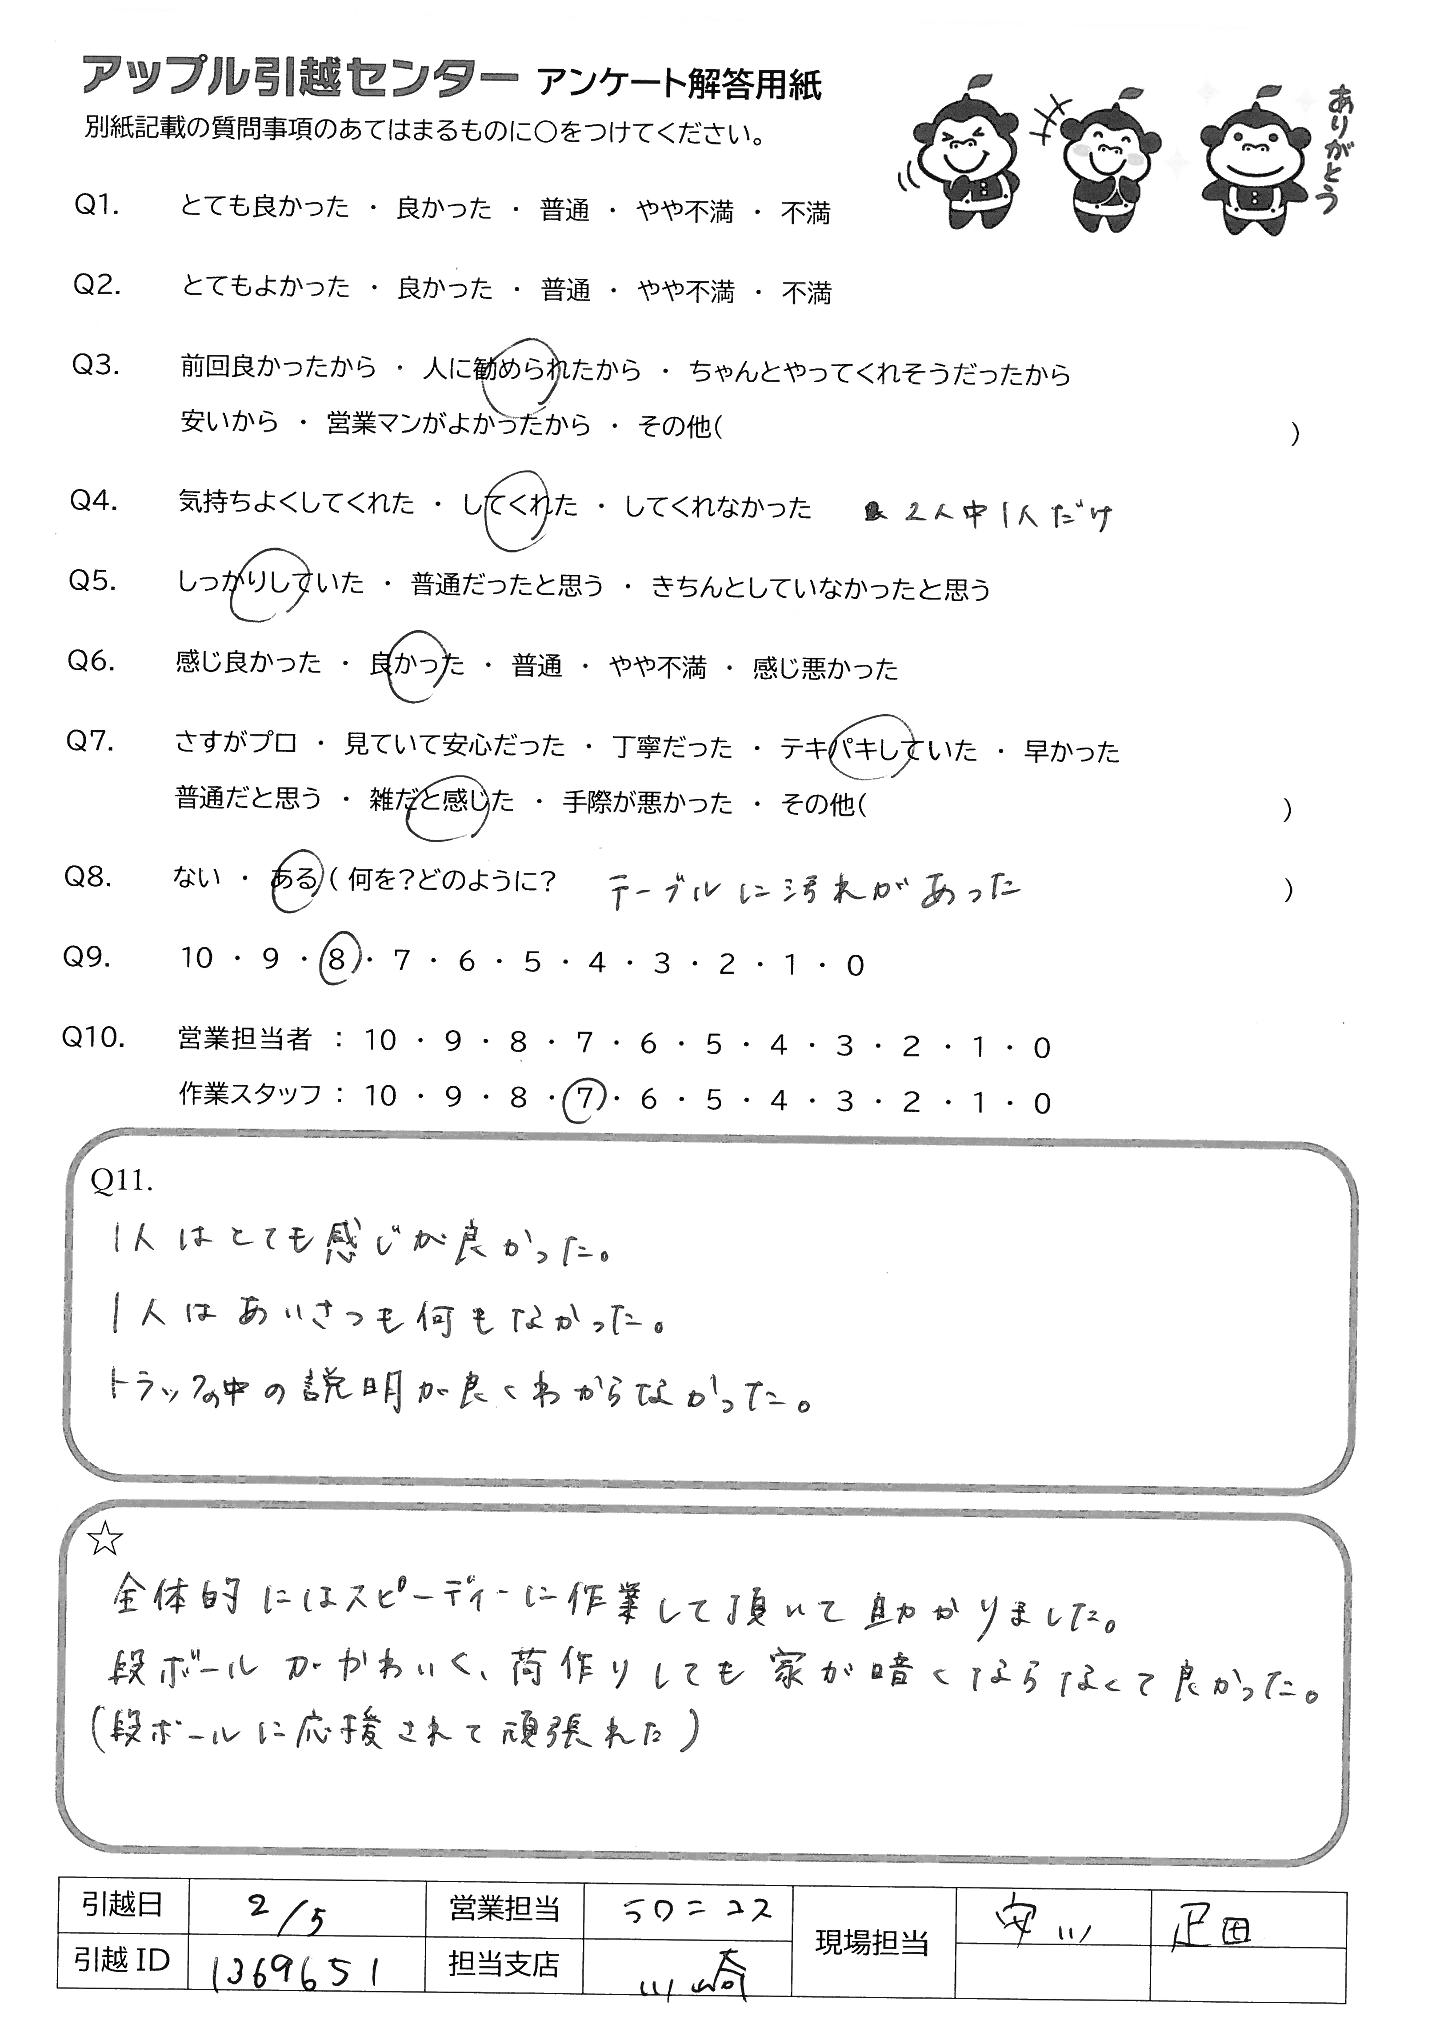 アップル引越センター アンケート解答用紙
別紙記載の質問事項のあてはまるものに○をつけてください。
ありがとう
Q1. とても良かった ・ 良かった ・ 普通 ・ やや不満 ・ 不満
Q2. とてもよかった ・ 良かった ・ 普通 ・ やや不満 ・ 不満
Q3. 前回良かったから ・ 人に勧められたから ・ ちゃんとやってくれそうだったから
安いから ・ 営業マンがよかったから ・ その他( )
Q4. 気持ちよくしてくれた ・ してくれた ・ してくれなかった 2人中1人だけ
Q5. しっかりしていた ・ 普通だったと思う ・ きちんとしていなかったと思う
Q6. 感じ良かった ・ 良かった ・ 普通 ・ やや不満 ・ 感じ悪かった
Q7. さすがプロ ・ 見ていて安心だった ・ 丁寧だった ・ テキパキしていた ・ 早かった
普通だと思う ・ 雑だと感じた ・ 手際が悪かった ・ その他( )
Q8. ない ・ ある ( 何を?どのように? テーブルに汚れがあった )
Q9. 10 ・ 9 ・ 8 ・ 7 ・ 6 ・ 5 ・ 4 ・ 3 ・ 2 ・ 1 ・ 0
Q10. 営業担当者 : 10 ・ 9 ・ 8 ・ 7 ・ 6 ・ 5 ・ 4 ・ 3 ・ 2 ・ 1 ・ 0
作業スタッフ : 10 ・ 9 ・ 8 ・ 7 ・ 6 ・ 5 ・ 4 ・ 3 ・ 2 ・ 1 ・ 0
Q11.
1人はとても感じが良かった。
1人はあいさつも何もなかった。
トラックの中の説明が良くわからなかった。
☆
全体的にはスピーディーに作業して頂いて助かりました。
段ボールがかわいく、荷作りしても家が暗くならなくて良かった。
(段ボールに応援されて頑張れた)
引越日 2/5 営業担当 ラクニコス 現場担当 安川 疋田
引越ID 1369651 担当支店 川崎